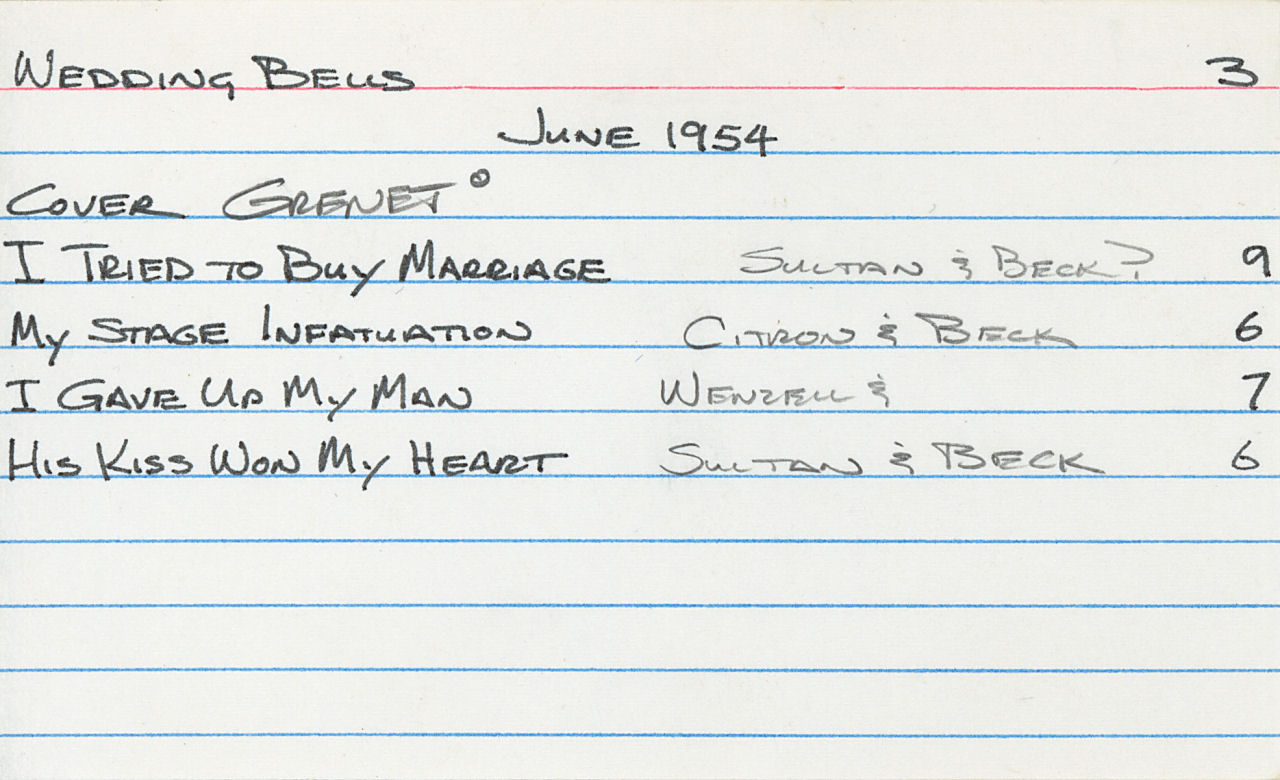 WEDDING BELLS 3
JUNE 1954
COVER GRENET °
I TRIED TO BUY MARRIAGE SULTAN & BECK? 9
MY STAGE INFATUATION CITRON & BECK 6
I GAVE UP MY MAN WENZELL & 7
HIS KISS WON MY HEART SULTAN & BECK 6